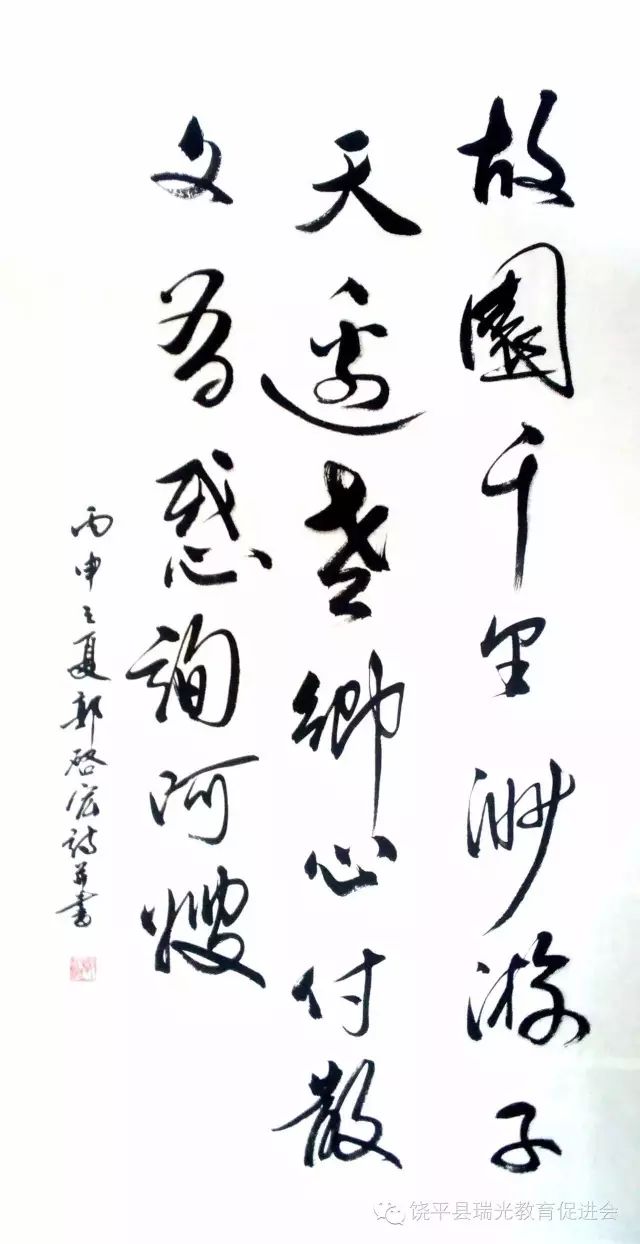 故園千里渺游子
天邊老鄉心付散
文有惑詢阿嫂
丙申之夏郭啓宏詩并書
饶平县瑞光教育促进会